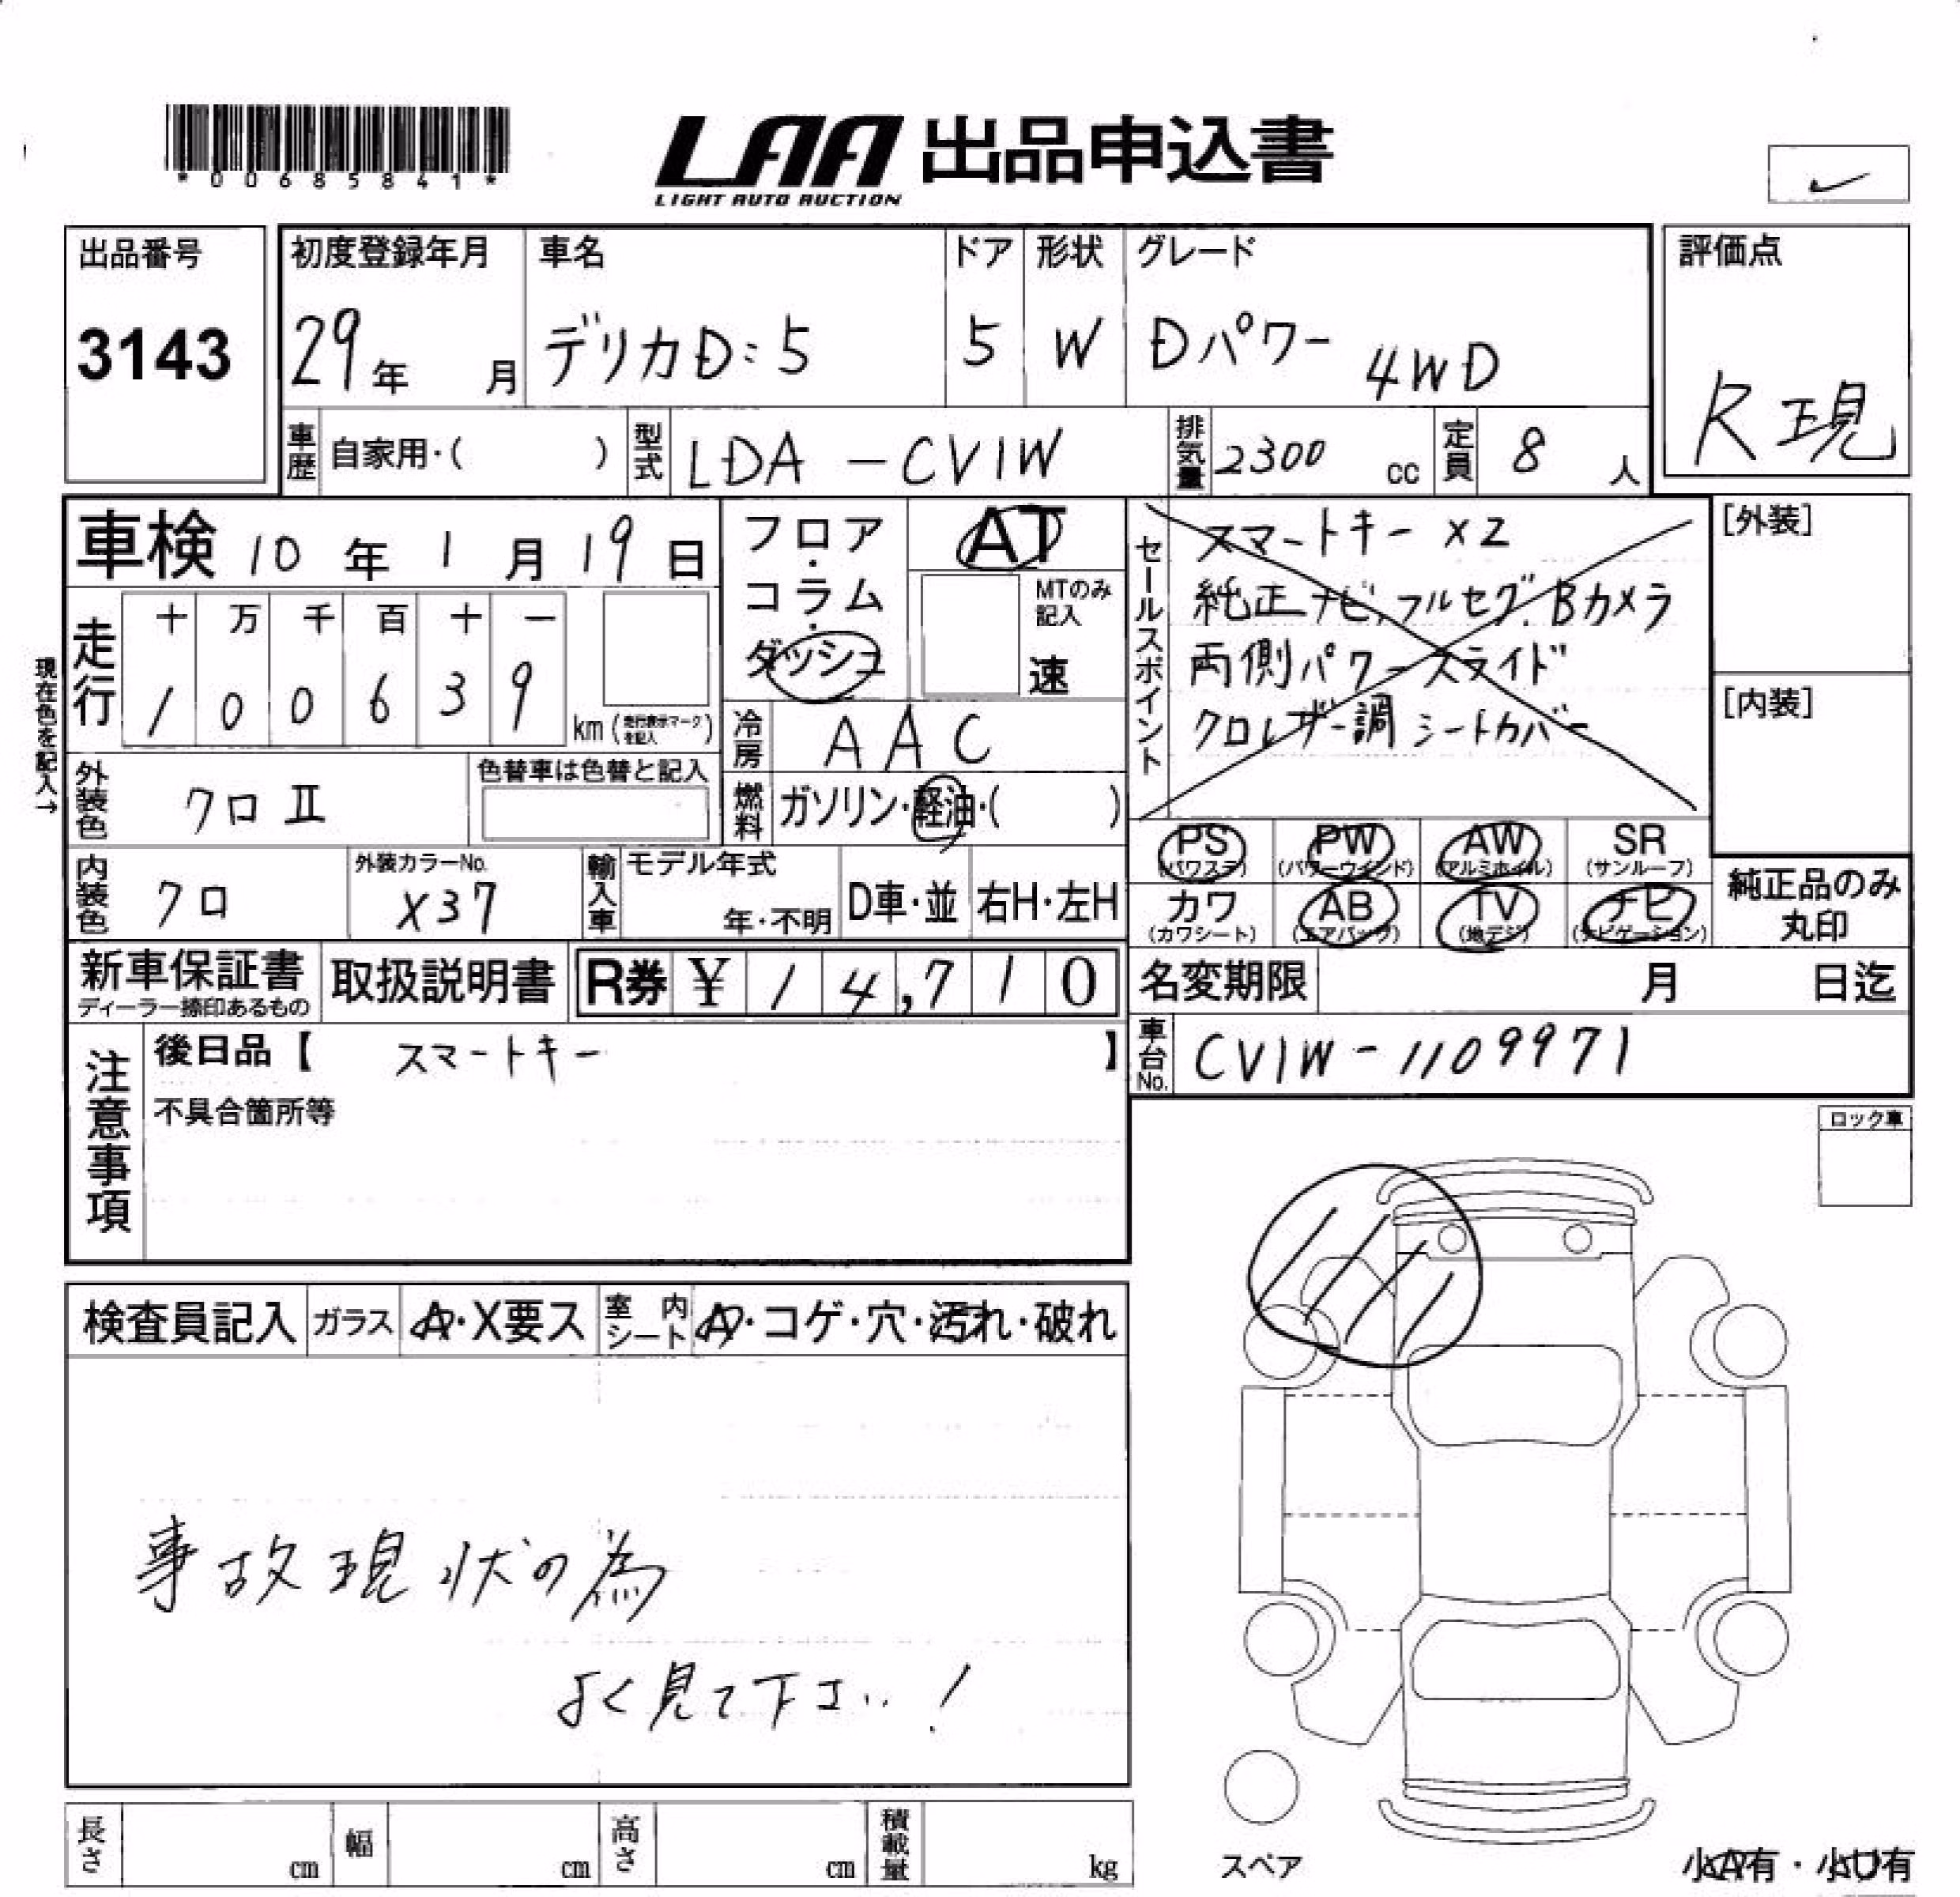 *00685841*
LAA 出品申込書
LIGHT AUTO AUCTION
出品番号
3143
初度登録年月
29年 月
車名
デリカD:5
ドア
5
形状
W
グレード
Dパワー 4WD
評価点
R現
車歴 自家用・( )
型式 LDA-CV1W
排気量 2300 cc
定員 8 人
車検 10年 1月 19日
現在色を記入→
走行
十 万 千 百 十 一
1 0 0 6 3 9 km (走行表示マークを記入)
フロア・コラム・ダッシュ
AT
MTのみ記入
速
冷房 AAC
燃料 ガソリン・軽油・( )
セールスポイント
スマートキー X2
純正ナビ,フルセグ,Bカメラ
両側パワースライド
クロレザー調シートカバー
[外装]
[内装]
外装色 クロII
色替車は色替と記入
内装色 クロ
外装カラーNo.
X37
輸入車
モデル年式
年・不明
D車・並
右H・左H
PS (パワステ)
PW (パワーウインド)
AW (アルミホイル)
SR (サンルーフ)
カワ (カワシート)
AB (エアバッグ)
TV (地デジ)
ナビ (ナビゲーション)
純正品のみ丸印
新車保証書
ディーラー捺印あるもの
取扱説明書
R券 ¥ 14,710
名変期限 月 日迄
車台No. CV1W-1109971
注意事項
後日品【 スマートキー 】
不具合箇所等
ロック車
検査員記入
ガラス A・X要ス
室内シート A・コゲ・穴・汚れ・破れ
事故現状の為
よく見て下さい!
長さ cm
幅 cm
高さ cm
積載量 kg
スペア
小A有・小U有